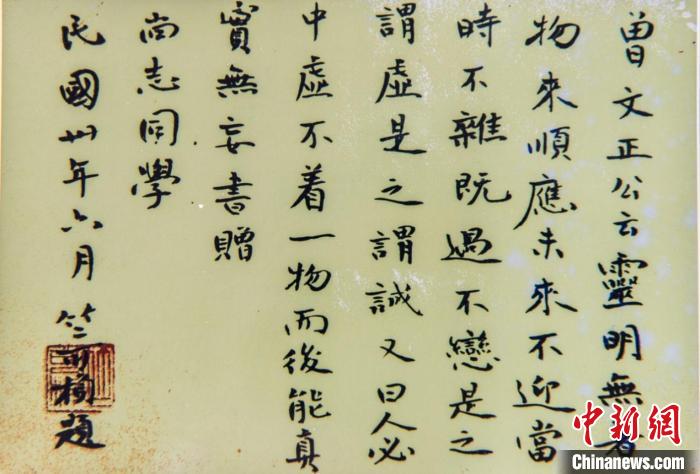 曾文正公云靈明無着
物來順應未來不迎當
時不雜既過不戀是之
謂虛是之謂誠又曰人必
中虛不着一物而後能真
實無妄書贈
尚志同學
民國卅年六月竺可楨題
中新网
Chinanews.com